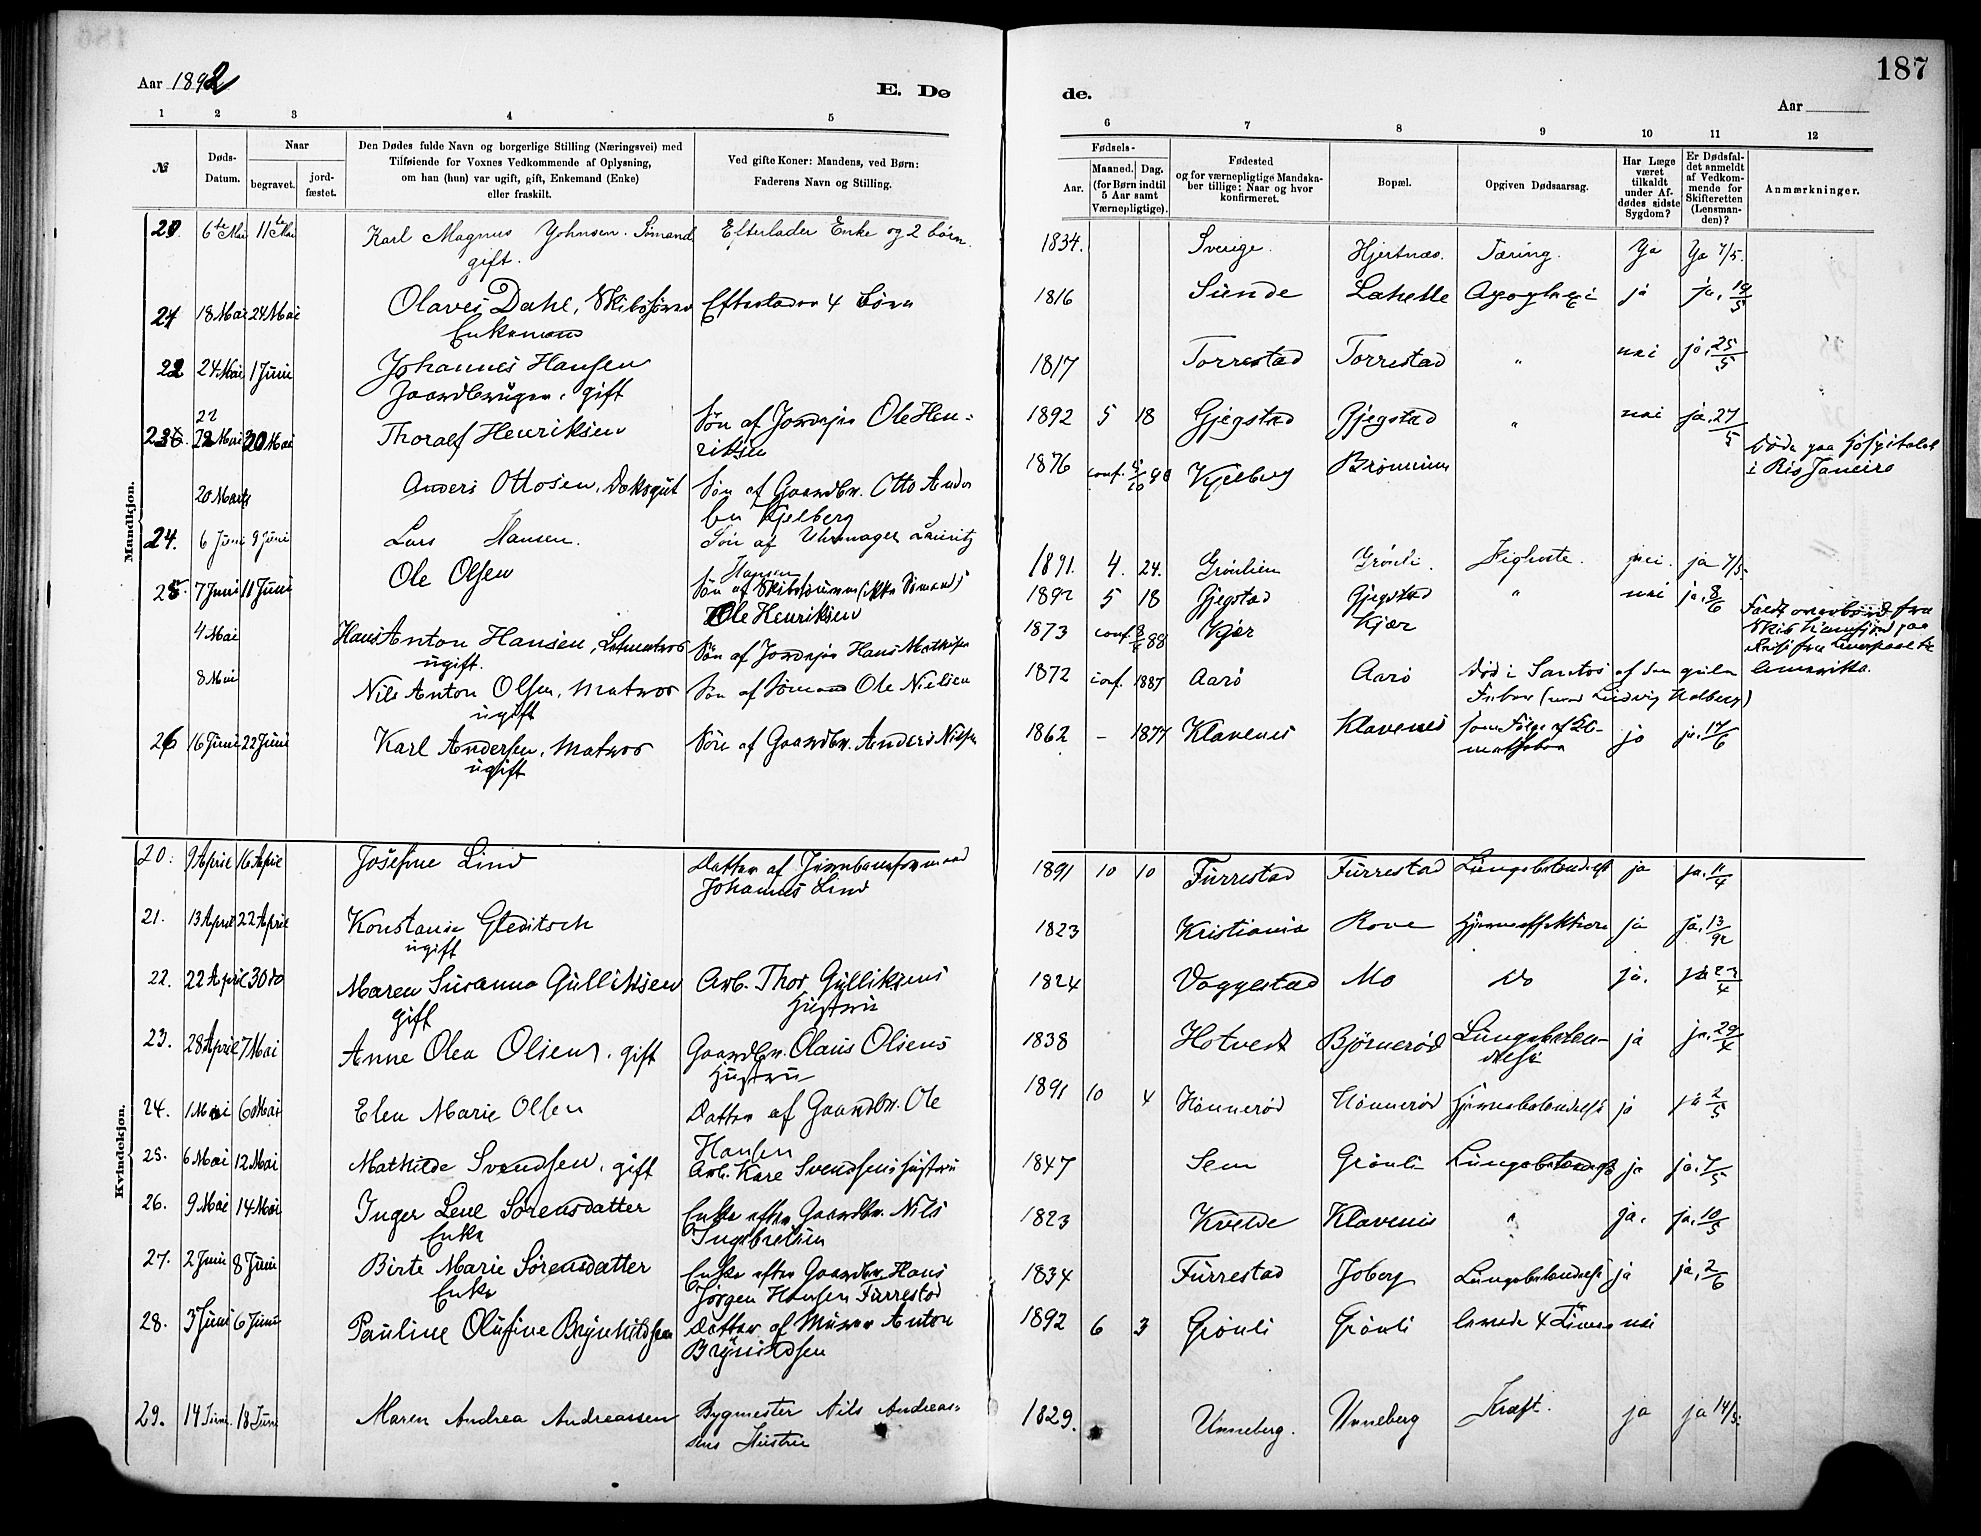 187
Aar 1892
E. Dø
de.
Aar
1 2 3 4 5
6 7 8 9 10 11 12
№
Døds-
Datum.
Naar
begravet.
jord-
fæstet.
Den Dødes fulde Navn og borgerlige Stilling (Næringsvei) med
Tilføiende for Voxnes Vedkommende af Oplysning,
om han (hun) var ugift, gift, Enkemand (Enke)
eller fraskilt.
Ved gifte Koner: Mandens, ved Børn:
Faderens Navn og Stilling.
Fødsels-
Aar.
Maaned. Dag.
(for Børn indtil
5 Aar samt
Værnepligtige).
Fødested
og for værnepligtige Mandska-
ber tillige: Naar og hvor
konfirmeret.
Bopæl.
Opgiven Dødsaarsag.
Har Læge
været
tilkaldt
under Af-
dødes sidste
Sygdom?
Er Dødsfal-
det anmeldt
af Vedkom-
mende for
Skifteretten
(Lensman-
den)?
Anmærkninger.
Mandkjøn.
6te Mai 11te Mai Karl Magnus Johnsen. Sømand Efterlader Enke og 2 børn. 1834. Sverige. Hjertnæs. Tæring. Ja Ja 7/5.
gift.
21 18 Mai 24 Mai Olaves Dahl, Efterlader 4 børn 1816 Sunde Lahelle ja ja, 19/5
Enkemand
22 24 Mai 1 Juni Johannes Hansen 1817 Torrestad Torrestad " nei ja, 25/5
Gaardbruger, gift
23 22 Mai 30 Mai Thoralf Henriksen Søn af Ole Hen- 1892 5 18 Gjegstad Gjegstad " nei ja, 27/5
riksen
20 Marts Anders Ottosen, Dæksgut Søn af Gaardbr. Otto Anders 1876 conf. Kjelberg Døde paa Hospitalet
i Rio Janeiro
Kjelberg
24. 6 Juni 9 Juni Lars Hansen. Søn af Uhrmager Lauritz 1891. 4. 24. Grønlien Grønli. nei. ja 7/5
Hansen
25 7 Juni 11 Juni Ole Olsen Søn af (ikke Sømand) 1892 5 18 Gjegstad Gjegstad " nei ja, 8/6
Ole Henriksen
4 Mai Hans Anton Hansen, Letmatros Søn af Hans Mathisen 1873 conf. 88 Kjær Kjær Faldt overbord fra
ugift. Skib paa
Reise fra Liverpool til
Amerika.
8 Mai Nils Anton Olsen, Matros Søn af Sømand Ole Nielsen 1872 conf. 1887 Aarø Aarø Død i Santos af den gule
ugift Feber (med Ludvig Holberg)
26 16 Juni 22 Juni Karl Andersen, Matros Søn af Gaardbr. Anders Nilsen 1862 - 1877 Klavenes Klavenes som Følge af ja ja, 17/6
ugift
Kvindekjøn.
20. 9 April 16 April Josefine Lind Datter af 1891 10 10 Furrestad Furrestad Lungebetændelse ja ja, 11/4
Johannes Lind
21. 13 April 22 April Konstanse Gleditsch 1823 Kristiania Rove Hjerneaffektion ja ja, 13/92
ugift
22. 22 April 30 do Maren Susanna Gulliksen Arb. Thor Gulliksens 1824 Vaggestad Mo do ja. ja
gift Hustru
23. 28 April 7 Mai Anne Olea Olsens, gift Gaardbr. Olaus Olsens 1838 Hotvedt Bjørnerød Lungebetæn- ja ja, 29/4
Hustru delse
24. 1 Mai 6 Mai Elen Marie Olsen Datter af Gaardbr. Ole 1891 10 4 Hønnerød Hønnerød Hjernebetændelse ja ja 2/5
Hansen
25. 6 Mai 12 Mai Mathilde Svendsen, gift Arb. Kare Svendsens Hustru 1847 Sem Grønli Lungebetændelse ja ja, 7/5
26. 9 Mai 14 Mai Inger Lene Sørensdatter Enke efter Gaardbr. Nils 1823 Kvelde Klavenes " ja. ja, 10/5
Enke Ingebretsen
27. 2 Juni 8 Juni Birte Marie Sørensdatter Enke efter Gaardbr. Hans 1834 Furrestad Joberg Lungebetændelse ja ja, 2/6
Enke Jørgen Hansen Furrestad
28. 3 Juni 6 Juni Pauline Olufine Brynildsen Datter af Murer Anton 1892 6 3 Grønli Grønli levede 4 Timer nei
Brynildsen
29. 14 Juni. 18 Juni Maren Andrea Andreassen Bygmester Nils Andreas- 1829. Unneberg. Unneberg Kræft. ja ja
sens Hustru